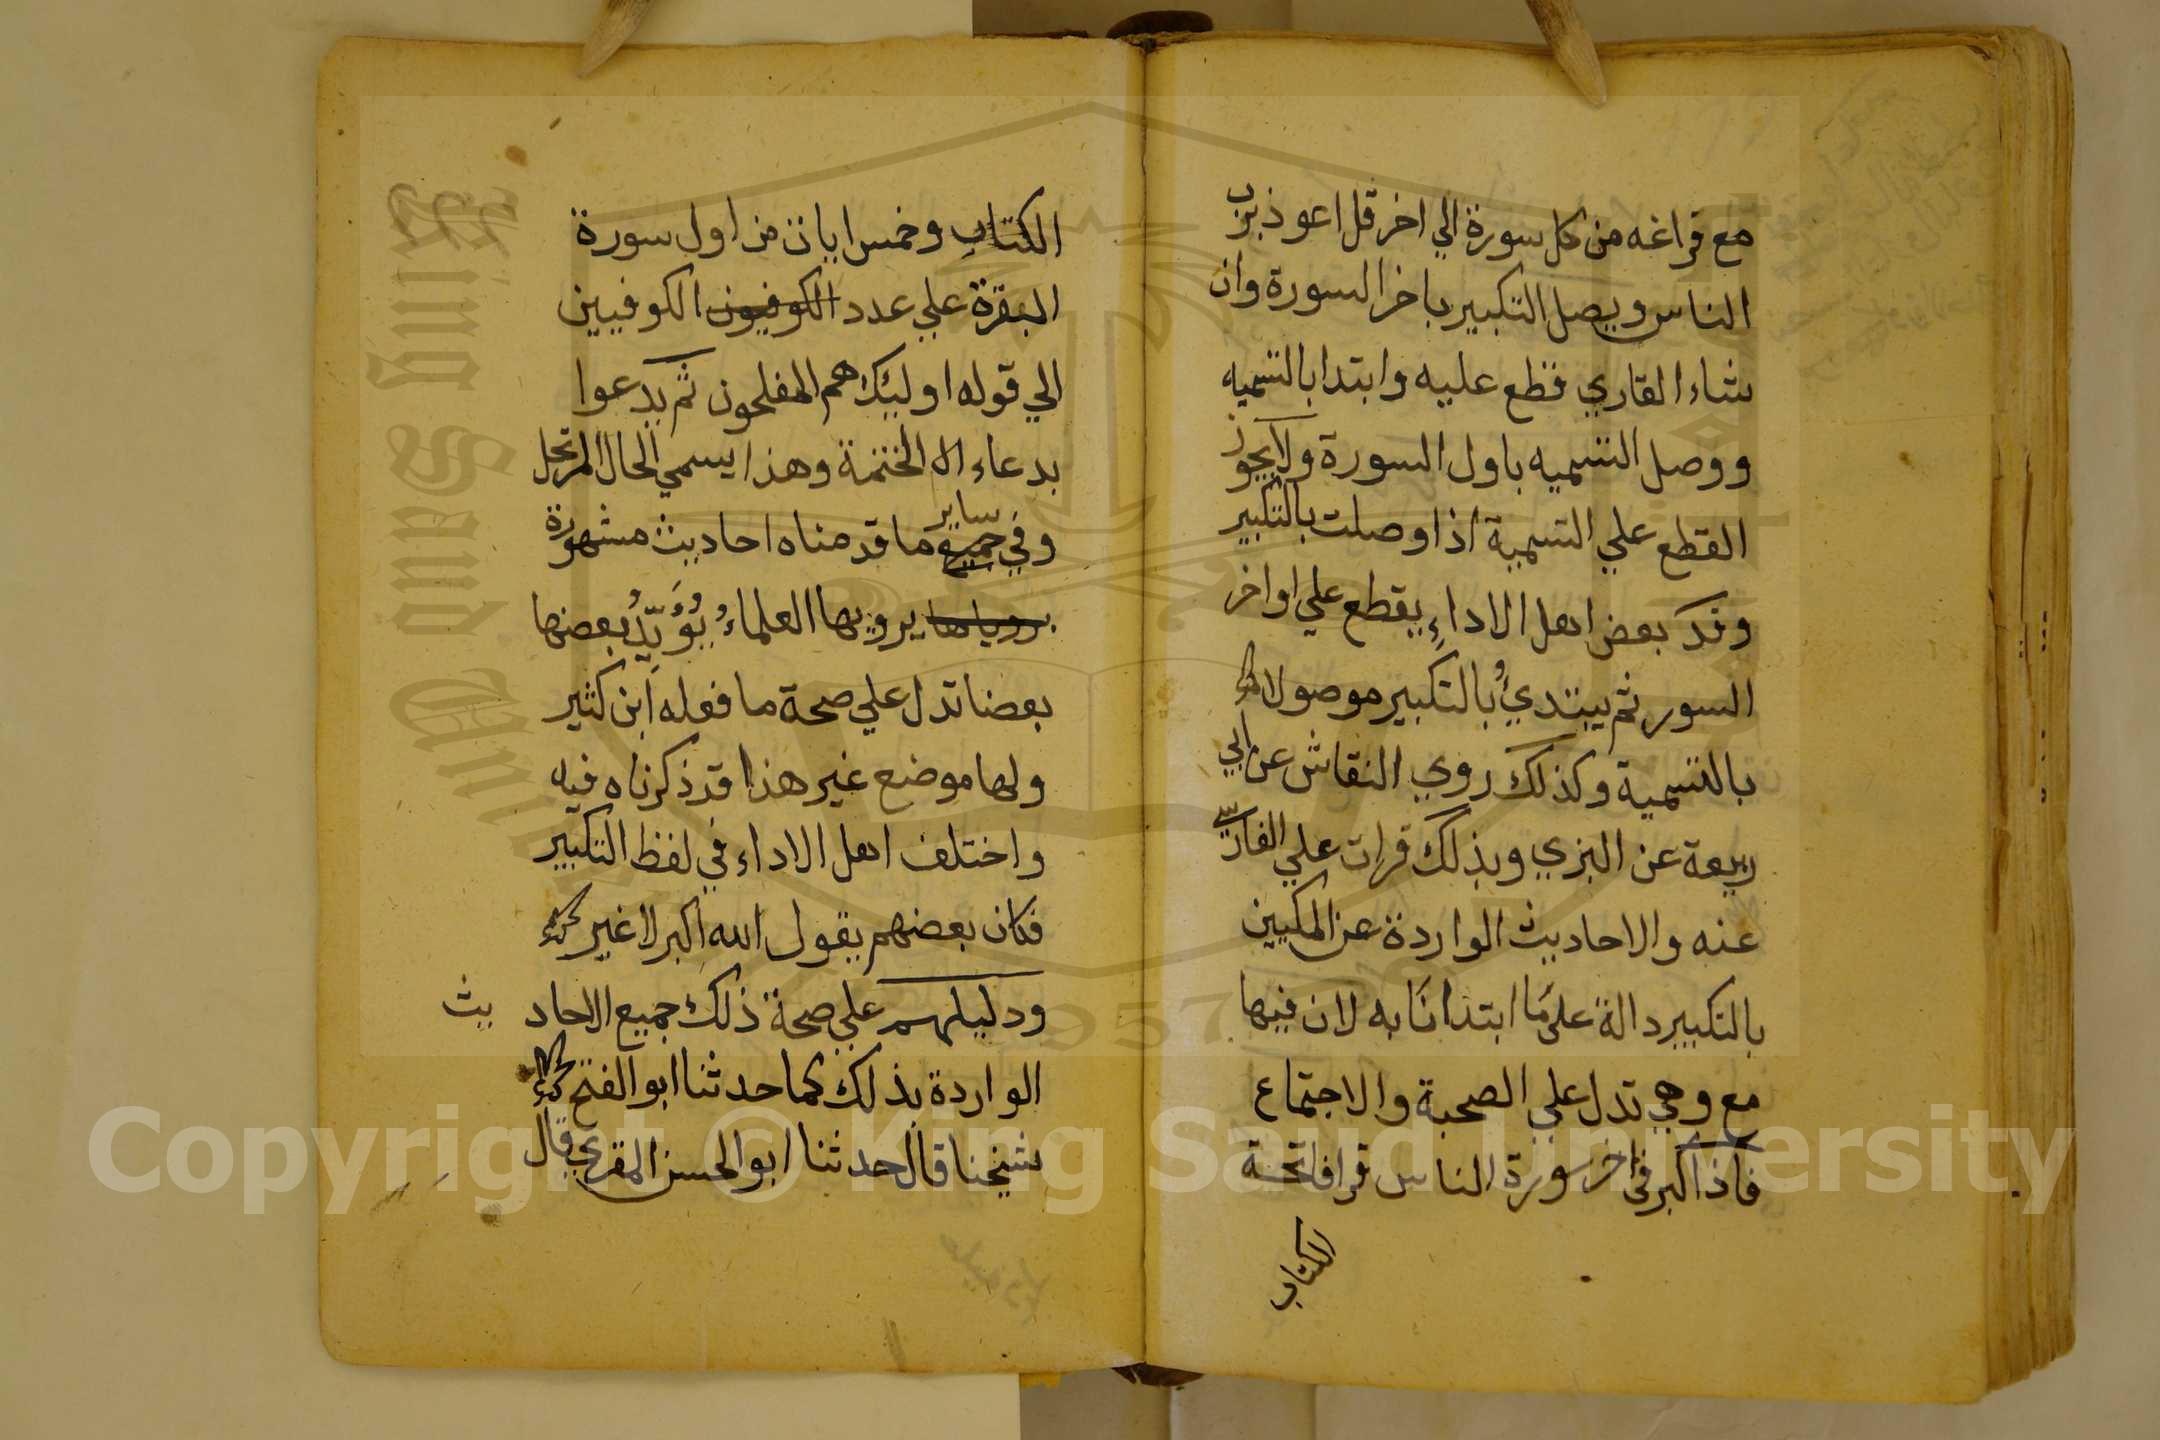 مع فراغه من كل سورة الي اخر قل اعوذ برب
الناس ويصل التكبير باخر السورة وان
شاء القاري قطع عليه وابتدا بالتسميه
ووصل التسميه باول السورة ولا يجوز
القطع علي التسمية اذا وصلت بالتكبير
وقد بعض اهل الاداء يقطع علي اواخر
السور ثم يبتدئ بالتكبير موصولا
بالتسمية وكذلك روي النقاش عن ابي
ربيعة عن البزي وبذلك قرات علي الفارسي
عنه والاحاديث الواردة عن المكيين
بالتكبير دالة علي ما ابتدانا به لان فيها
مع وهي تدل علي الصحبة والاجتماع
فاذا كبر في اخر سورة الناس قرا فاتحة
الكتاب
الكتاب وخمس ايات من اول سورة
البقرة علي عدد الكوفيون الكوفيين
الي قوله اوليك هم المفلحون ثم يدعوا
بدعاء الا الختمة وهذا يسمي الحال المرتحل
ساير
وفي جميع ما قدمناه احاديث مشهورة
يرويها العلماء يؤيد بعضها
بعضا تدل علي صحة ما فعله ابن كثير
ولها موضع غير هذا قد ذكرناه فيه
واختلف اهل الاداء في لفظ التكبير
فكان بعضهم يقول الله اكبر لا غير
ودليلهم علي صحة ذلك جميع الاحاد يث
الواردة بذلك كما حدثنا ابو الفتح
شيخنا قال حدثنا ابو الحسن المقري قال
Copyright © King Saud University
1957